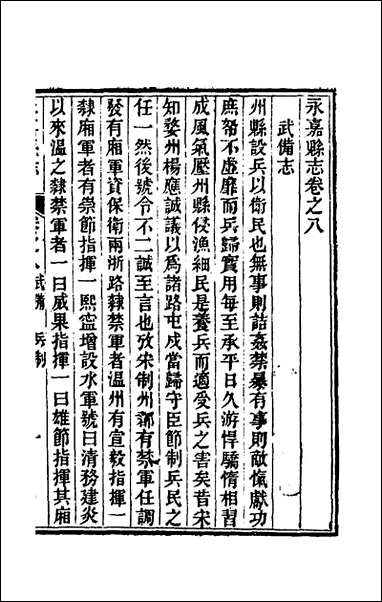 永嘉縣志卷之八
武備志
州縣設兵以衛民也無事則詰姦禁暴有事則敵愾獻功
庶帑不虛靡而兵歸實用每至承平日久游悍驕惰相習
成風氣壓州縣侵漁細民是養兵而適受兵之害矣昔宋
知婺州楊應誠議以爲諸路屯戍當歸守臣節制兵民之
任一然後號令不二誠至言也攷宋制州郡有禁軍任調
發有廂軍資保衛兩浙路隸禁軍者溫州有宣毅指揮一
隸廂軍者有崇節指揮一熙寧增設水軍號曰清務建炎
以來溫之隸禁軍者一曰威果指揮一曰雄節指揮其廂
武備 兵制